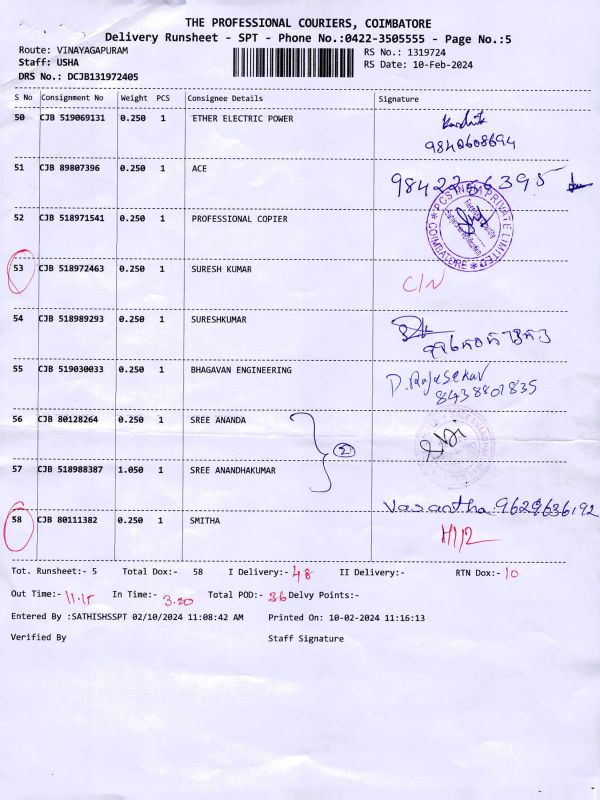 THE PROFESSIONAL COURIERS, COIMBATORE
Delivery Runsheet - SPT - Phone No.:0422-3505555 - Page No.:5
Route: VINAYAGAPURAM RS No.: 1319724
Staff: USHA RS Date: 10-Feb-2024
DRS No.: DCJB131972405
S No Consignment No Weight PCS Consignee Details Signature
50 CJB 519069131 0.250 1 ETHER ELECTRIC POWER
9840608694
51 CJB 89807396 0.250 1 ACE
52 CJB 518971541 0.250 1 PROFESSIONAL COPIER
PRIVATE LIMITED COIMBATORE
53 CJB 518972463 0.250 1 SURESH KUMAR C/N
54 CJB 518989293 0.250 1 SURESHKUMAR
55 CJB 519030033 0.250 1 BHAGAVAN ENGINEERING D. Rajesekar
8438801835
56 CJB 80128264 0.250 1 SREE ANANDA
57 CJB 518988387 1.050 1 SREE ANANDHAKUMAR
Vasantha. 9629636192
58 CJB 80111382 0.250 1 SMITHA
Tot. Runsheet:- 5 Total Dox:- 58 I Delivery:- 48 II Delivery:- RTN Dox:- 10
Out Time:- 11.15 In Time:- 3.20 Total POD:- 36 Delvy Points:-
Entered By :SATHISHSSPT 02/10/2024 11:08:42 AM Printed On: 10-02-2024 11:16:13
Verified By Staff Signature